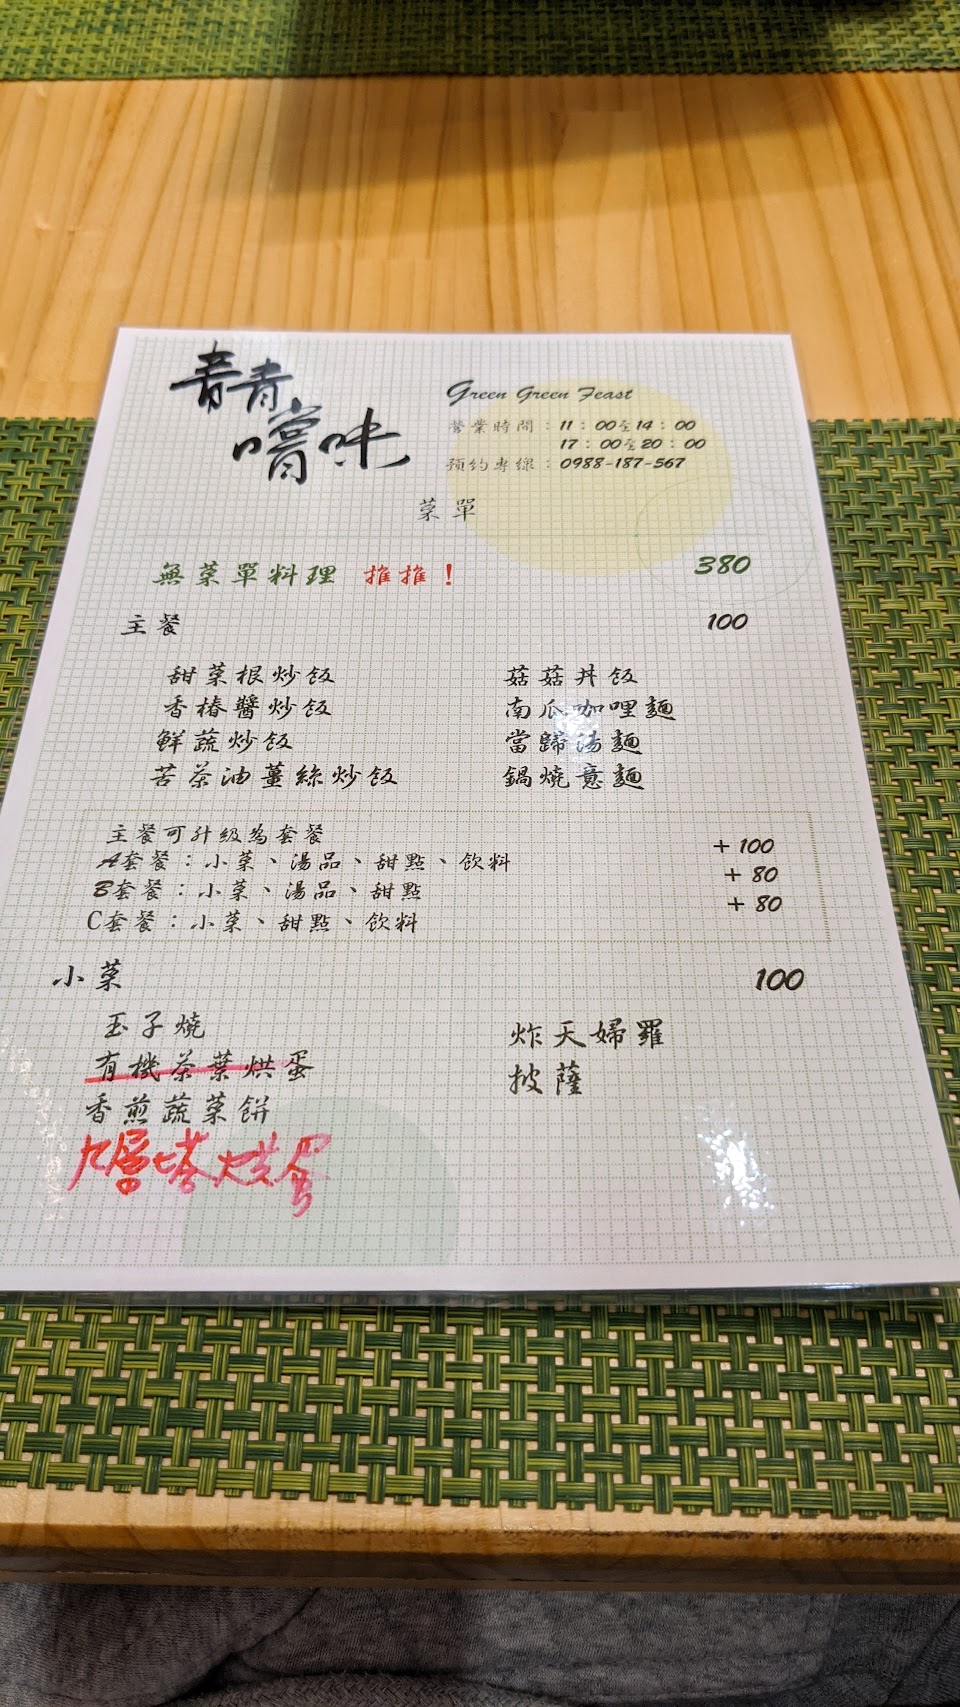 青青
嚐味
Green Green Feast
營業時間：11：00至14：00
17：00至20：00
預約專線：0988-187-567
菜單
無菜單料理 推推！ 380
主餐 100
甜菜根炒飯 菇菇丼飯
香椿醬炒飯 南瓜咖哩麵
鮮蔬炒飯 當歸湯麵
苦茶油薑絲炒飯 鍋燒意麵
主餐可升級為套餐
A套餐：小菜、湯品、甜點、飲料 +100
B套餐：小菜、湯品、甜點 +80
C套餐：小菜、甜點、飲料 +80
小菜 100
玉子燒 炸天婦羅
有機茶葉烘蛋 披薩
香煎蔬菜餅
九層塔烘蛋